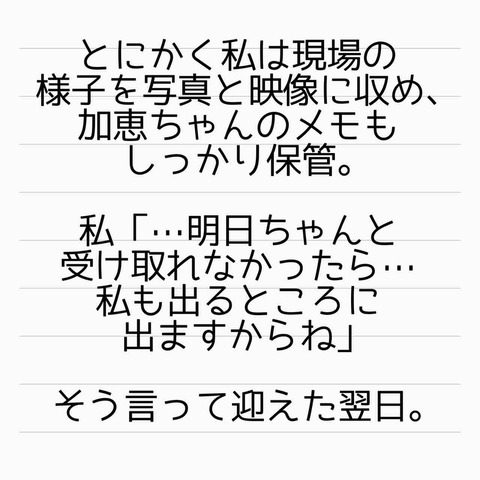 とにかく私は現場の
様子を写真と映像に収め、
加恵ちゃんのメモも
しっかり保管。
私「…明日ちゃんと
受け取れなかったら…
私も出るところに
出ますからね」
そう言って迎えた翌日。